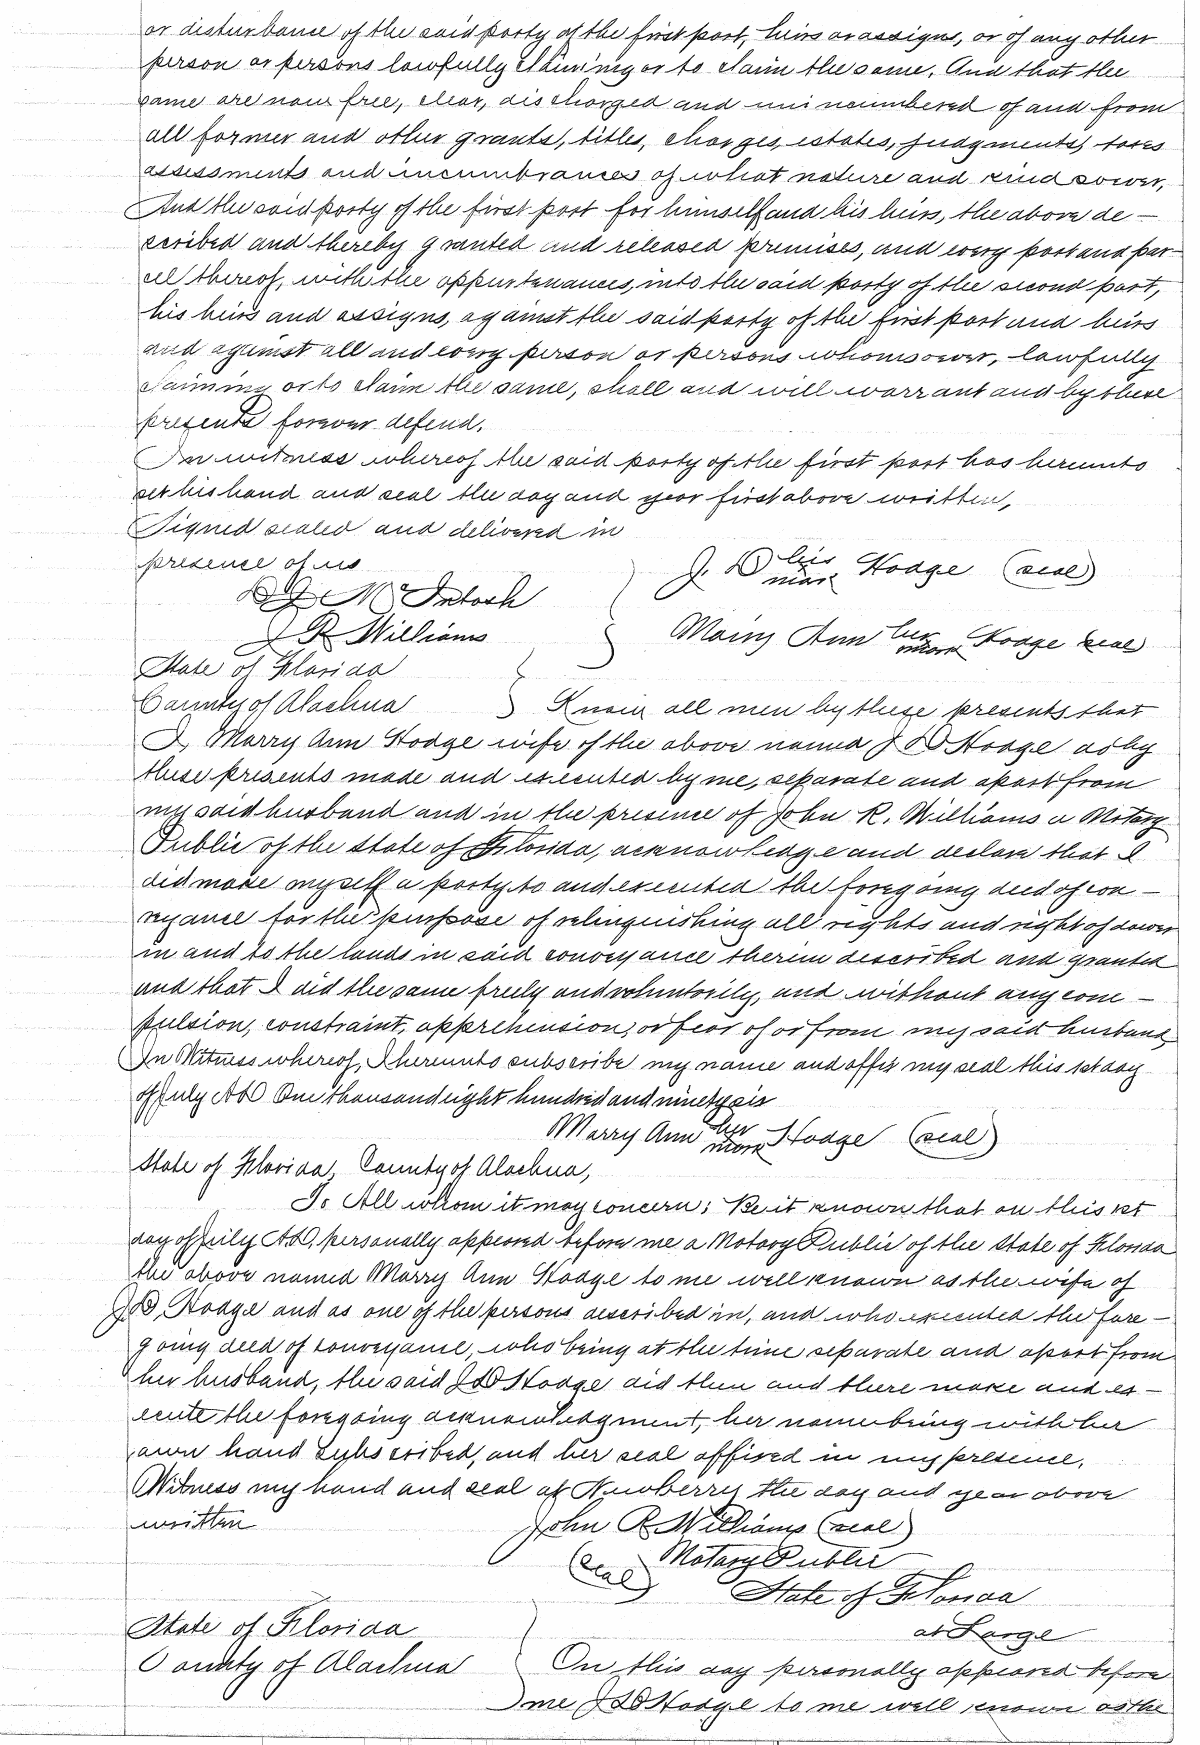 or disturbance of the said party of the first part, heirs or assigns, or of any other
person or persons lawfully claiming or to claim the same. And that the
same are now free, clear, discharged and unincumbered of and from
all former and other grants, titles, charges, estates, judgments, taxes
assessments and incumbrances of what nature and kind soever,
And the said party of the first part for himself and his heirs, the above de-
scribed and thereby granted and released premises, and every part and par-
cel thereof, with the appurtenances, into the said party of the second part,
his heirs and assigns, against the said party of the first part and heirs
and against all and every person or persons whomsoever, lawfully
claiming or to claim the same, shall and will warrant and by these
presents forever defend.
In witness whereof the said party of the first part has hereunto
set his hand and seal the day and year first above written,
Signed sealed and delivered in
presence of us
J. D his mark Hodge (seal)
D J McIntosh
J R Williams
Marry Ann her mark Hodge seal
State of Florida
County of Alachua } Know all men by these presents that
I, Marry Ann Hodge wife of the above named J D Hodge do by
these presents made and executed by me, separate and apart from
my said husband and in the presence of John R. Williams a Notary
Public of the state of Florida, acknowledge and declare that I
did make myself a party to and executed the foregoing deed of con-
veyance for the purpose of relinquishing all rights and right of dower
in and to the lands in said conveyance therein described and granted
and that I did the same freely and voluntarily, and without any com-
pulsion, constraint, apprehension, or fear of or from my said husband,
In Witness whereof, I hereunto subscribe my name and affix my seal this 1st day
of July AD One thousand eight hundred and ninety six
Marry Ann her mark Hodge (seal)
State of Florida, County of Alachua,
To All whom it may concern: Be it known that on this 1st
day of July AD, personally appeared before me a Notary Public of the State of Florida
the above named Marry Ann Hodge to me well known as the wife of
J D, Hodge and as one of the persons described in, and who executed the fore-
going deed of conveyance, who being at the time separate and apart from
her husband, the said J D Hodge did then and there make and ex-
ecute the foregoing acknowledgment, her name being with her
own hand subscribed, and her seal affixed in my presence.
Witness my hand and seal at Newberry the day and year above
written
John R Williams (seal)
(seal) Notary Public
State of Florida
at Large
State of Florida
County of Alachua } On this day personally appeared before
me J D Hodge to me well known as the